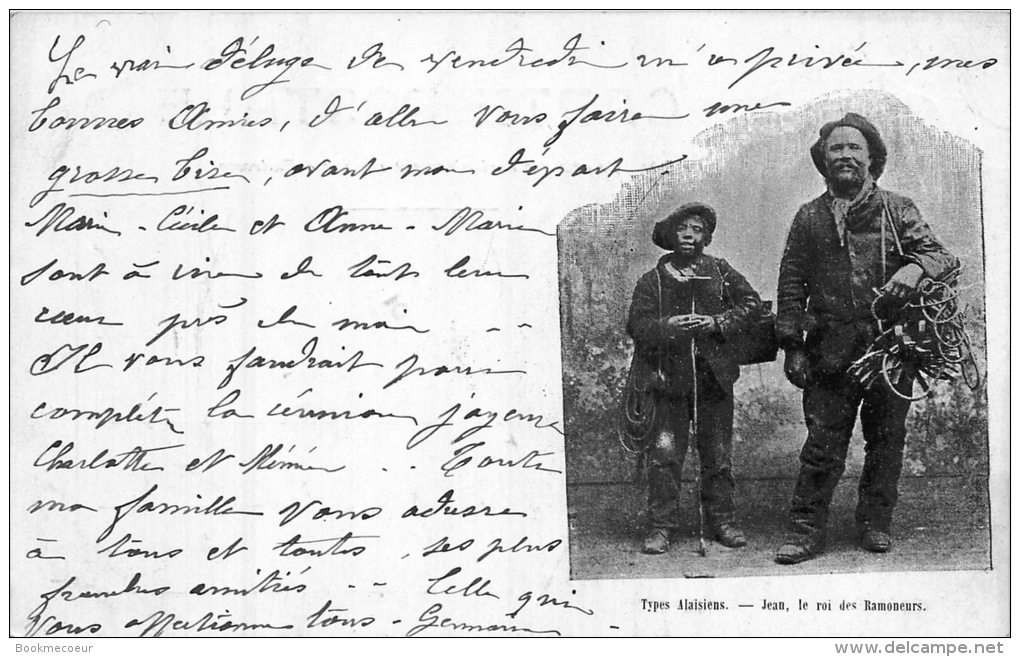 Le vrai déluge de vendredi m'a privée, mes
bonnes Amies, d'aller vous faire une
grosse bise, avant mon départ.
Marie-Cécile et Anne-Marie
sont à vive de tout leur
cœur près de moi --
Il vous faudrait pour
compléter la réunion joyeuse
Charlotte et Mémée .. Toute
ma famille vous adresse
à tous et toutes, ses plus
franches amitiés -- Celle qui
vous affectionne tous - Germaine -
Types Alaisiens. — Jean, le roi des Ramoneurs.
Bookmecoeur
www.delcampe.net